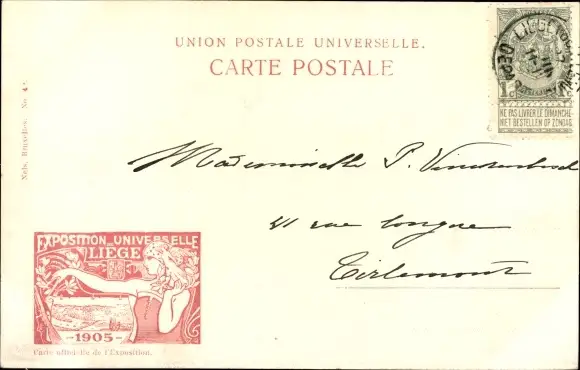 UNION POSTALE UNIVERSELLE.
CARTE POSTALE
1c 1c
NE PAS LIVRER LE DIMANCHE
NIET BESTELLEN OP ZONDAG
Nels, Bruxelles. No 4
Mademoiselle P.
41 rue longue
Tirlemont
EXPOSITION UNIVERSELLE
LIÈGE
-1905-
Carte officielle de l'Exposition.